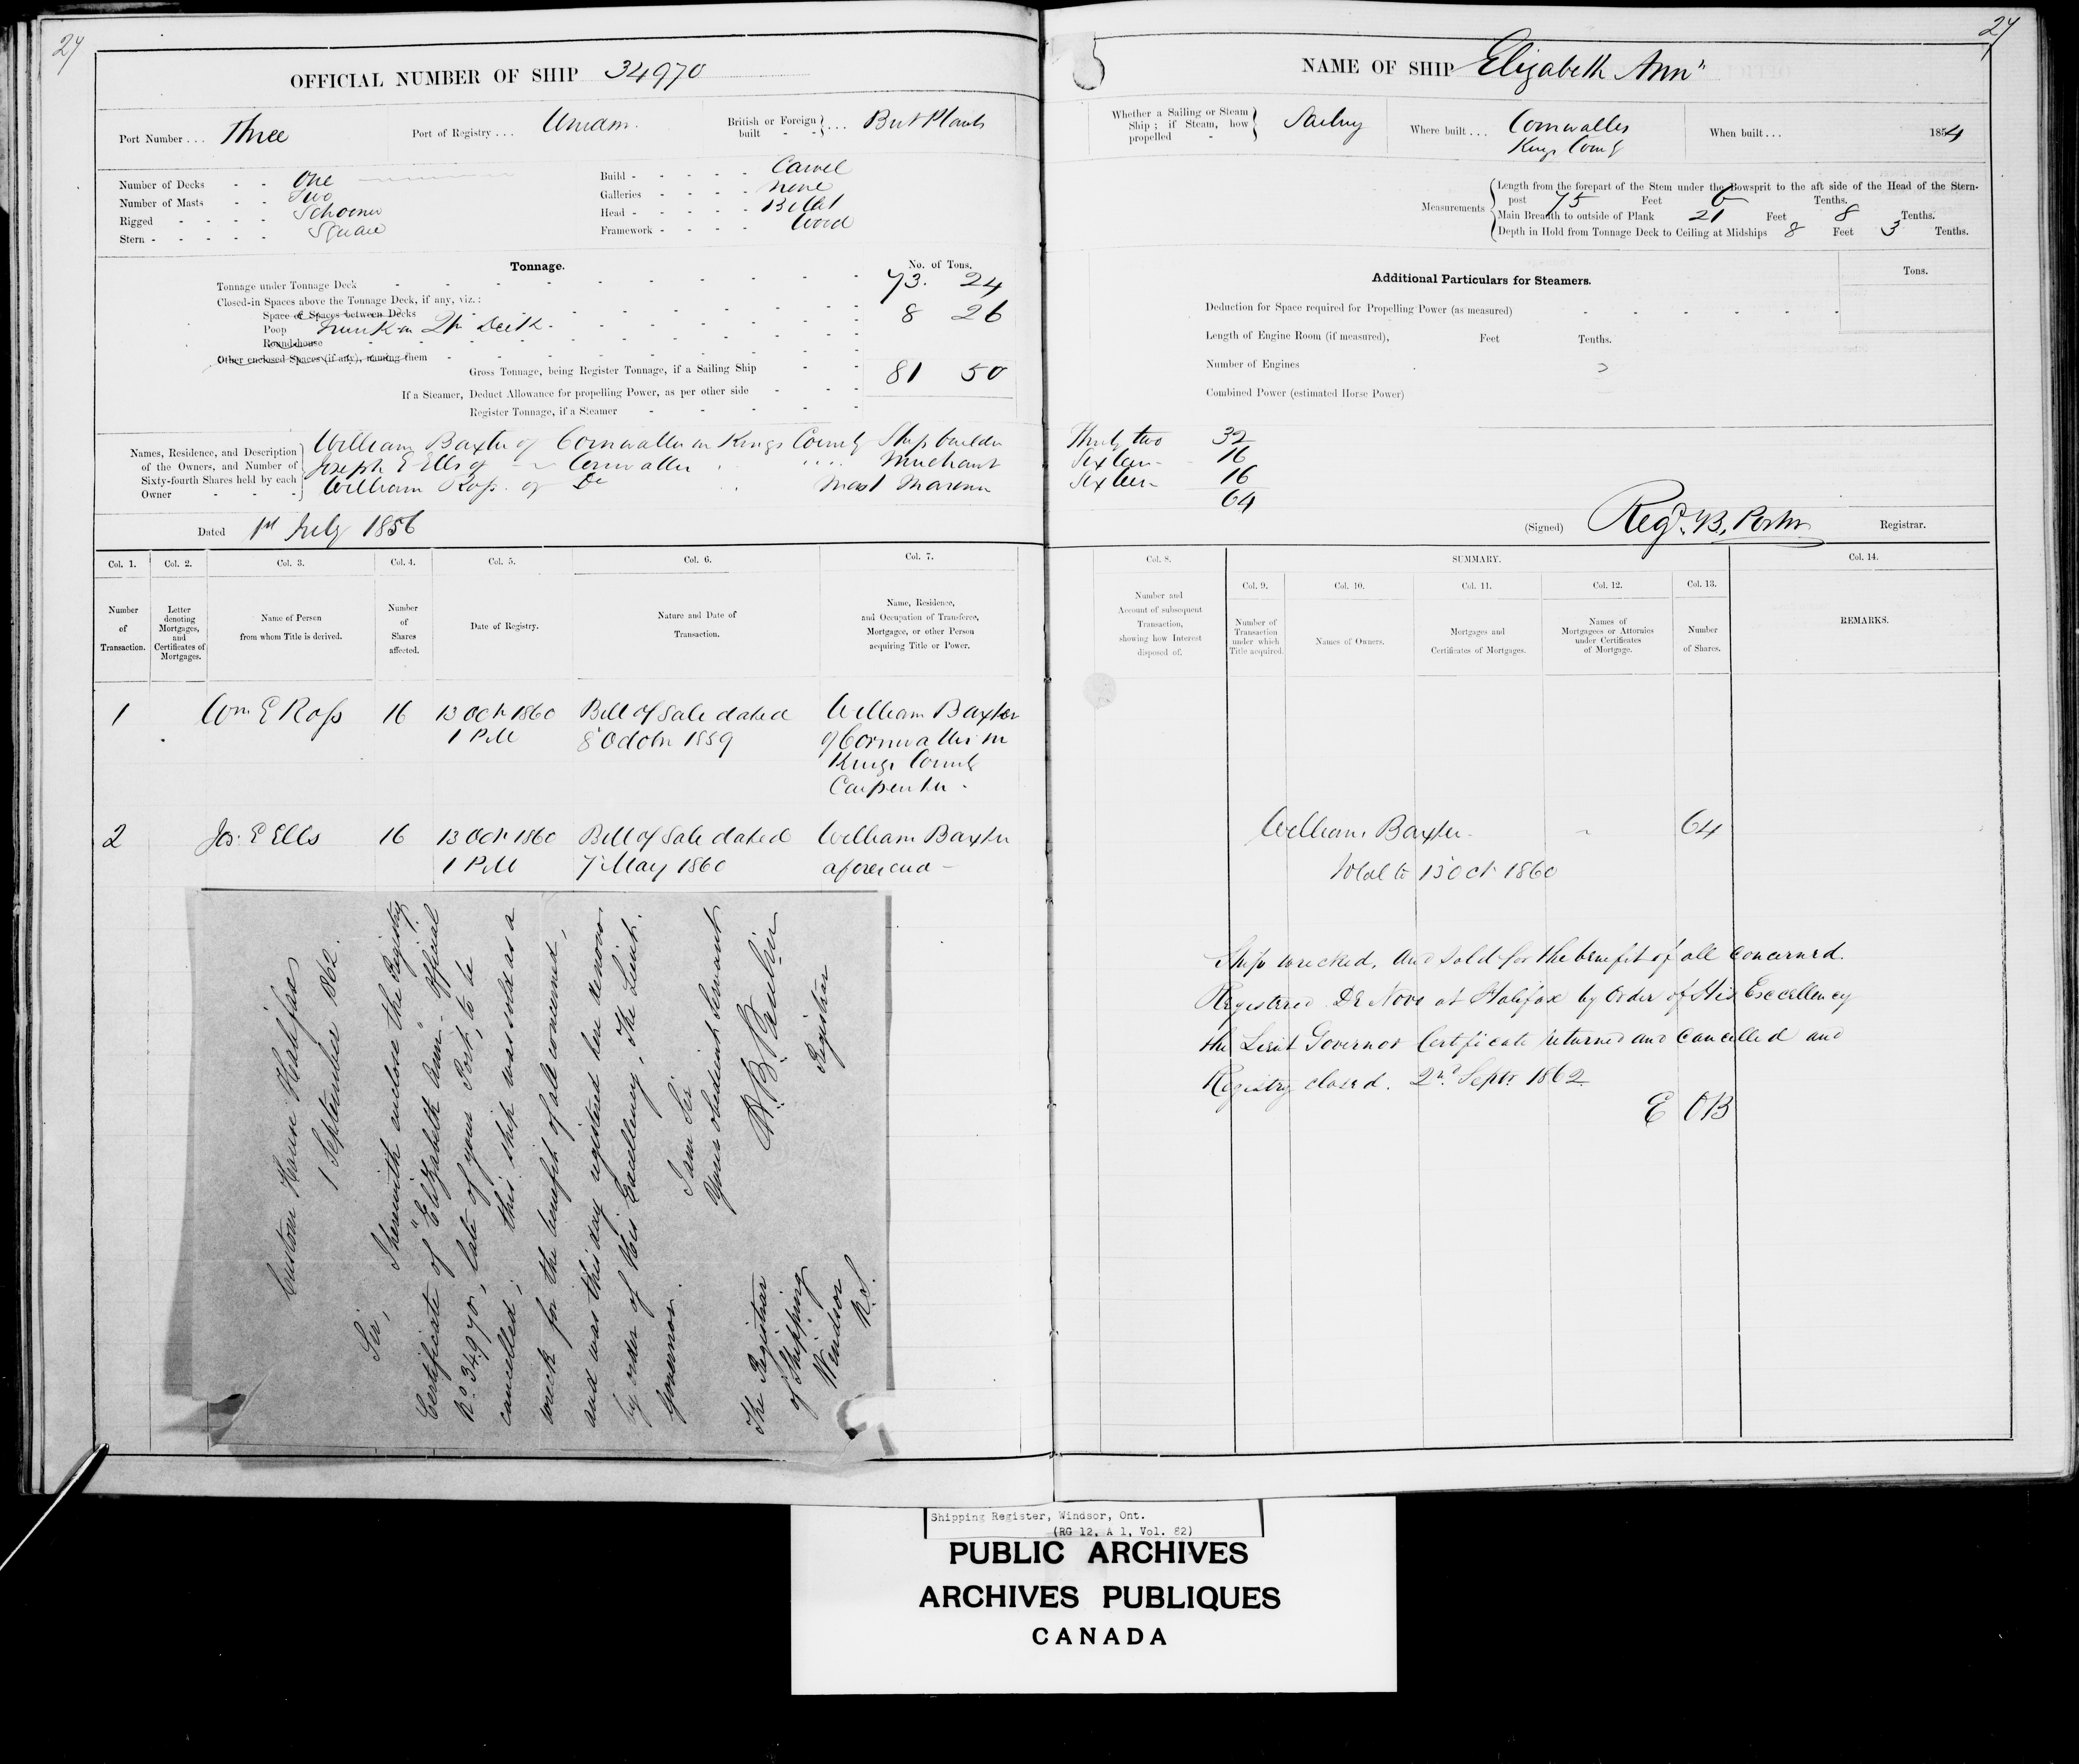 27
OFFICIAL NUMBER OF SHIP 34970
Port Number . . . Three
Port of Registry . . .
British or Foreign built - - } . . . Brit Plants
Number of Decks - - One
Number of Masts - - Two
Rigged - - - - Schooner
Stern - - - - - Square
Build - - - - - Carvel
Galleries - - - - none
Head - - - - - Billet
Framework - - - - Wood
Tonnage.
No. of Tons.
Tonnage under Tonnage Deck 73. 24
Closed-in Spaces above the Tonnage Deck, if any, viz.:
Space or Spaces between Decks 8 26
Poop Trunk on Qr Deck.
Roundhouse
Other enclosed Spaces (if any), naming them
Gross Tonnage, being Register Tonnage, if a Sailing Ship 81 50
If a Steamer, Deduct Allowance for propelling Power, as per other side
Register Tonnage, if a Steamer
Names, Residence, and Description of the Owners, and Number of Sixty-fourth Shares held by each Owner
William Baxter of Cornwallis in Kings County Ship builder
Joseph E Ells of Cornwallis Merchant
William Ross of Do Mast Marenn
Dated 1st July 1856
Col. 1. Col. 2. Col. 3. Col. 4. Col. 5. Col. 6. Col. 7.
Number of Transaction.
Letter denoting Mortgages, and Certificates of Mortgages.
Name of Person from whom Title is derived.
Number of Shares affected.
Date of Registry.
Nature and Date of Transaction.
Name, Residence, and Occupation of Transferee, Mortgagee, or other Person acquiring Title or Power.
1 Wm E Ross 16 13 Oct 1860 Bill of Sale dated William Baxter
1 P.M 8 Octobr 1859 of Cornwallis in
Kings County
Carpenter.
2 Jos: E Ells 16 13 Oct 1860 Bill of Sale dated William Baxter
1 P.M 7 May 1860 aforesaid
Custom House Halifax
1 September 1862.
Sir,
I herewith enclose the Registry
Certificate of "Elizabeth Ann" Official
No. 34970, late of your Port, to be
cancelled; this ship was sold as a
wreck for the benefit of all concerned,
and was this day registered here denovo
by order of His Excellency, the Lieut.
Governor.
I am Sir
Your obedient Servant
Registrar
The Registrar
of Shipping
Windsor
N.S.
27
NAME OF SHIP Elizabeth Ann"
Whether a Sailing or Steam Ship; if Steam, how propelled - } Sailing
Where built . . . Cornwallis
Kings County
When built . . . 1854
Measurements
Length from the forepart of the Stem under the Bowsprit to the aft side of the Head of the Stern-
post 75 Feet 6 Tenths.
Main Breadth to outside of Plank 21 Feet 8 Tenths.
Depth in Hold from Tonnage Deck to Ceiling at Midships 8 Feet 3 Tenths.
Additional Particulars for Steamers.
Tons.
Deduction for Space required for Propelling Power (as measured)
Length of Engine Room (if measured), Feet Tenths.
Number of Engines
Combined Power (estimated Horse Power)
Thirty two 32
Sixteen 16
Sixteen 16
64
(Signed) Regd. B. Porter Registrar.
Col. 8. SUMMARY. Col. 14.
Col. 9. Col. 10. Col. 11. Col. 12. Col. 13.
Number and Account of subsequent Transaction, showing how Interest disposed of.
Number of Transaction under which Title acquired.
Names of Owners.
Mortgages and Certificates of Mortgages.
Names of Mortgagees or Attornies under Certificates of Mortgage.
Number of Shares.
REMARKS.
William Baxter 64
Total to 13 Oct 1860
Ship wrecked, and sold for the benefit of all concerned.
Registered De Novo at Halifax by order of His Excellency
the Lieut Governor Certificate returned and cancelled and
Registry closed. 2nd. Septr 1862
E OB
Shipping Register, Windsor, Ont.
(RG 12, A 1, Vol. 82)
PUBLIC ARCHIVES
ARCHIVES PUBLIQUES
CANADA